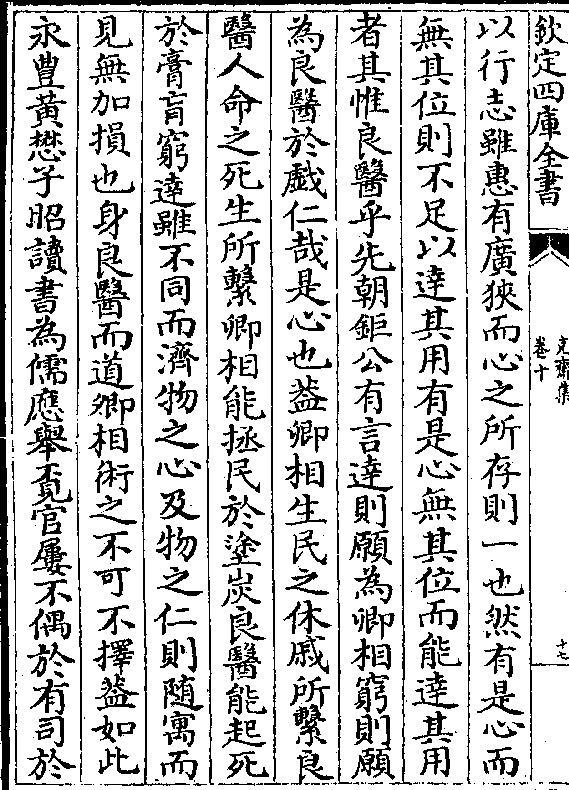 欽定四庫全書
克齋集
卷十
十七
以行志雖惠有廣狹而心之所存則一也然有是心而
無其位則不足以達其用有是心無其位而能達其用
者其惟良醫乎先朝鉅公有言達則願為卿相窮則願
為良醫於戲仁哉是心也葢卿相生民之休戚所繫良
醫人命之死生所繫卿相能拯民於塗炭良醫能起死
於膏肓窮達雖不同而濟物之心及物之仁則随寓而
見無加損也身良醫而道卿相術之不可不擇葢如此
永豊黄懋子昭讀書為儒應舉覔官屢不偶於有司於